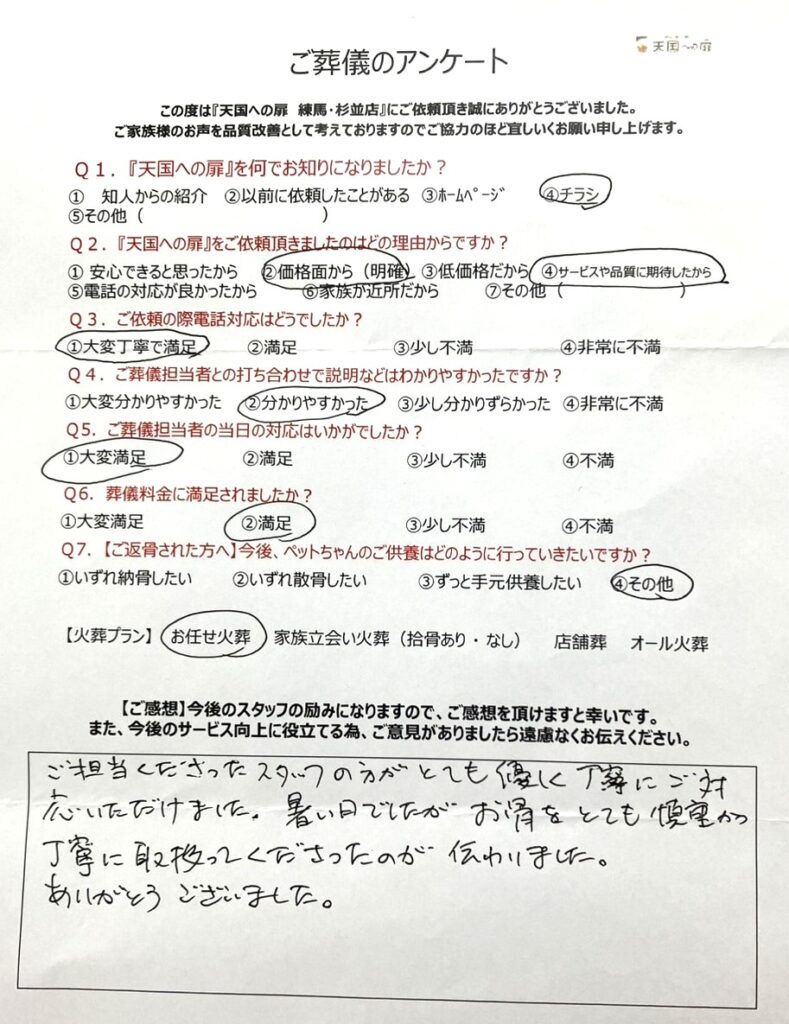 天国への扉
ご葬儀のアンケート
この度は『天国への扉 練馬・杉並店』にご依頼頂き誠にありがとうございました。
ご家族様のお声を品質改善として考えておりますのでご協力のほど宜しいくお願い申し上げます。
Q1．『天国への扉』を何でお知りになりましたか？
① 知人からの紹介 ②以前に依頼したことがある ③ﾎｰﾑﾍﾟｰｼﾞ ④チラシ
⑤その他（ ）
Q2．『天国への扉』をご依頼頂きましたのはどの理由からですか？
① 安心できると思ったから ②価格面から（明確） ③低価格だから ④サービスや品質に期待したから
⑤電話の対応が良かったから ⑥家族が近所だから ⑦その他（ ）
Q3．ご依頼の際電話対応はどうでしたか？
①大変丁寧で満足 ②満足 ③少し不満 ④非常に不満
Q4．ご葬儀担当者との打ち合わせで説明などはわかりやすかったですか？
①大変分かりやすかった ②分かりやすかった ③少し分かりずらかった ④非常に不満
Q5．ご葬儀担当者の当日の対応はいかがでしたか？
①大変満足 ②満足 ③少し不満 ④不満
Q6．葬儀料金に満足されましたか？
①大変満足 ②満足 ③少し不満 ④不満
Q7．【ご返骨された方へ】今後、ペットちゃんのご供養はどのように行っていきたいですか？
①いずれ納骨したい ②いずれ散骨したい ③ずっと手元供養したい ④その他
【火葬プラン】 お任せ火葬 家族立会い火葬（拾骨あり・なし） 店舗葬 オール火葬
【ご感想】今後のスタッフの励みになりますので、ご感想を頂けますと幸いです。
また、今後のサービス向上に役立てる為、ご意見がありましたら遠慮なくお伝えください。
ご担当くださったスタッフの方がとても優しく丁寧にご対
応いただけました。暑い日でしたがお骨をとても慎重かつ
丁寧に取扱ってくださったのが伝わりました。
ありがとうございました。